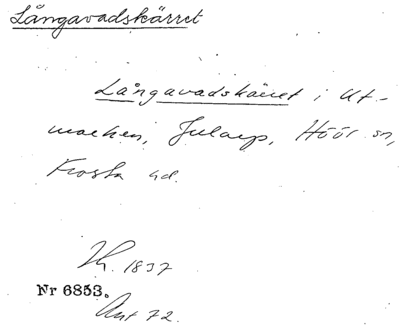 Långavadskärret
Långavadskärret i Ut-
marken, Jularp, Höör sn,
Frosta hd.
1837
Nr 6853.
Ant 72.